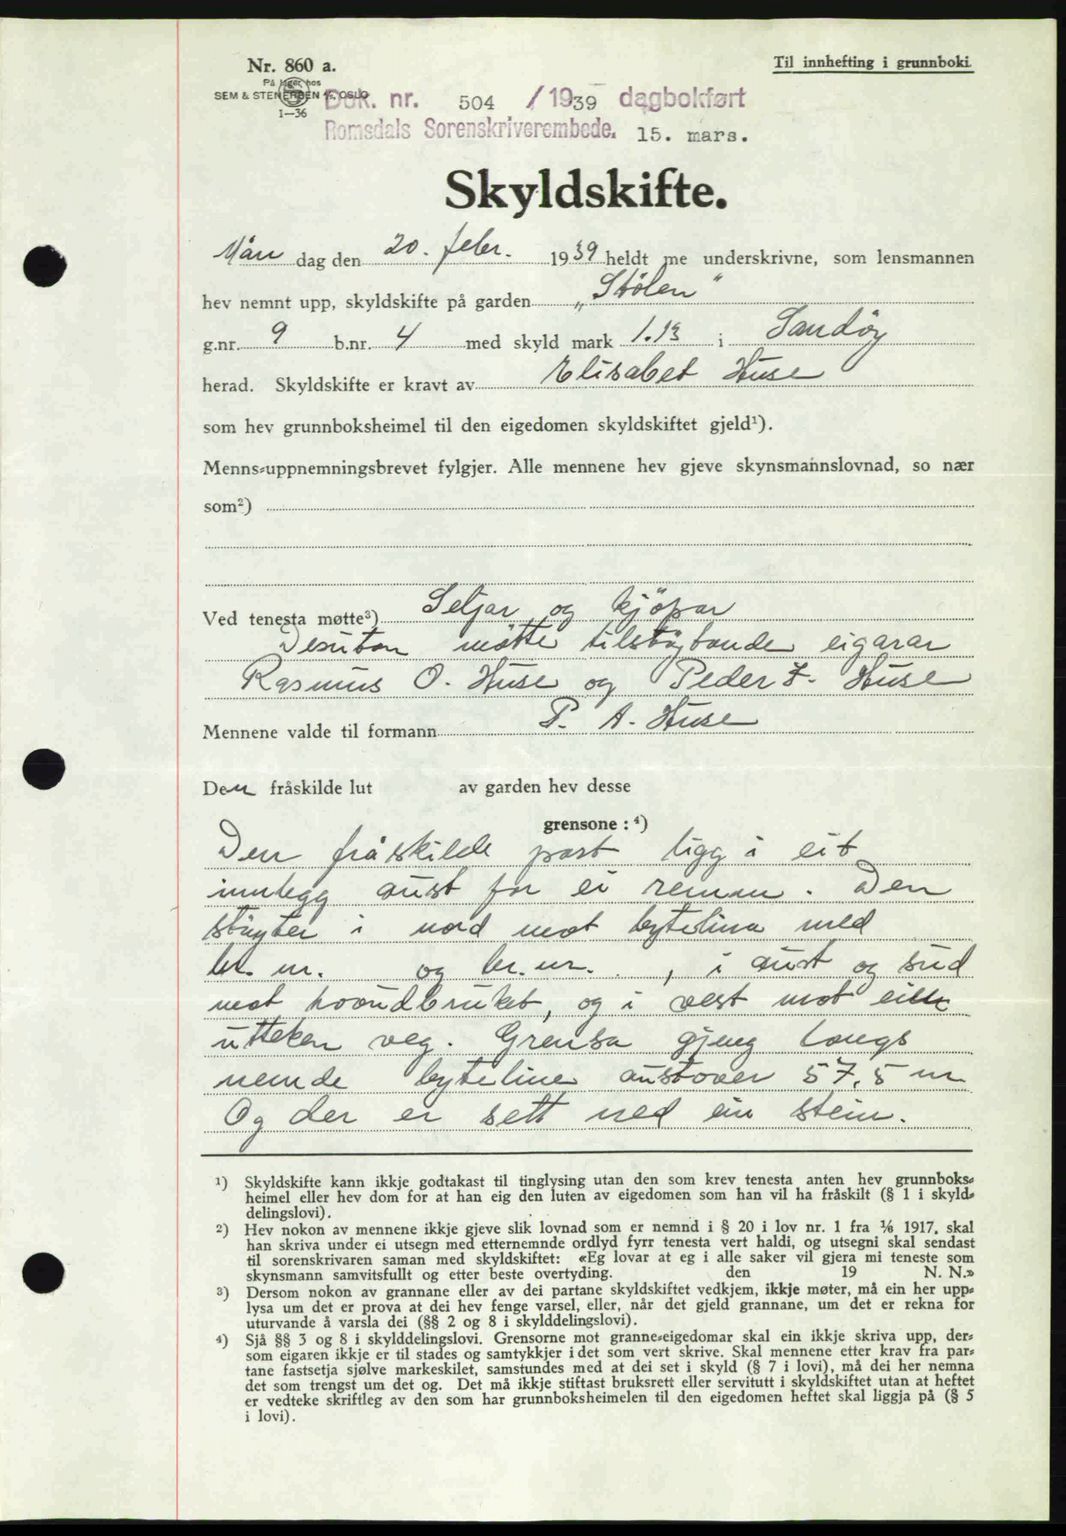 Nr. 860 a.
Til innhefting i grunnboki.
På lager hos
SEM & STENERSEN A/S, OSLO
1—36
Dok. nr. 504 /1939 dagbokført
Romsdals Sorenskriverembede. 15. mars.
Skyldskifte.
Mån dag den 20. febr. 1939 heldt me underskrivne, som lensmannen
hev nemnt upp, skyldskifte på garden „Stölen“
g.nr. 9 b.nr. 4 med skyld mark 1.13 i Sandöy
herad. Skyldskifte er kravt av Elisabet Huse
som hev grunnboksheimel til den eigedomen skyldskiftet gjeld¹).
Menns-uppnemningsbrevet fylgjer. Alle mennene hev gjeve skynsmannslovnad, so nær
som²)
Ved tenesta møtte³) Seljar og kjöpar
Desutan møtte tilstøytande eigarar
Rasmus O. Huse og Peder I. Huse
Mennene valde til formann P. A. Huse
Den fråskilde lut av garden hev desse
grensone : ⁴)
Den fråskilde part ligg i eit
innlegg aust for ei . Den
stöyter i nord mot bytelina med
br. nr. og br. nr. , i aust og sud
mot hovudbruket, og i vest mot ein
utteken veg. Grensa gjeng langs
nemde byteline austover 57,5 m
Og der er sett ned ein stein.
¹) Skyldskifte kann ikkje godtakast til tinglysing utan den som krev tenesta anten hev grunnboks-
heimel eller hev dom for at han eig den luten av eigedomen som han vil ha fråskilt (§ 1 i skyld-
delingslovi).
²) Hev nokon av mennene ikkje gjeve slik lovnad som er nemnd i § 20 i lov nr. 1 fra ¹/₆ 1917, skal
han skriva under ei utsegn med etternemnde ordlyd fyrr tenesta vert haldi, og utsegni skal sendast
til sorenskrivaren saman med skyldskiftet: «Eg lovar at eg i alle saker vil gjera mi teneste som
skynsmann samvitsfullt og etter beste overtyding. den 19 N. N.»
³) Dersom nokon av grannane eller av dei partane skyldskiftet vedkjem, ikkje møter, må ein her upp-
lysa um det er prova at dei hev fenge varsel, eller, når det gjeld grannane, um det er rekna for
uturvande å varsla dei (§§ 2 og 8 i skylddelingslovi).
⁴) Sjå §§ 3 og 8 i skylddelingslovi. Grensorne mot granne-eigedomar skal ein ikkje skriva upp, der-
som eigaren ikkje er til stades og samtykkjer i det som vert skrive. Skal mennene etter krav fra par-
tane fastsetja sjølve markeskilet, samstundes med at dei set i skyld (§ 7 i lovi), må dei her nemna
det som trengst um det og. Det må ikkje stiftast bruksrett eller servitutt i skyldskiftet utan at heftet
er vedteke skriftleg av den som har grunnboksheimelen til den eigedomen heftet skal liggja på (§ 5
i lovi).